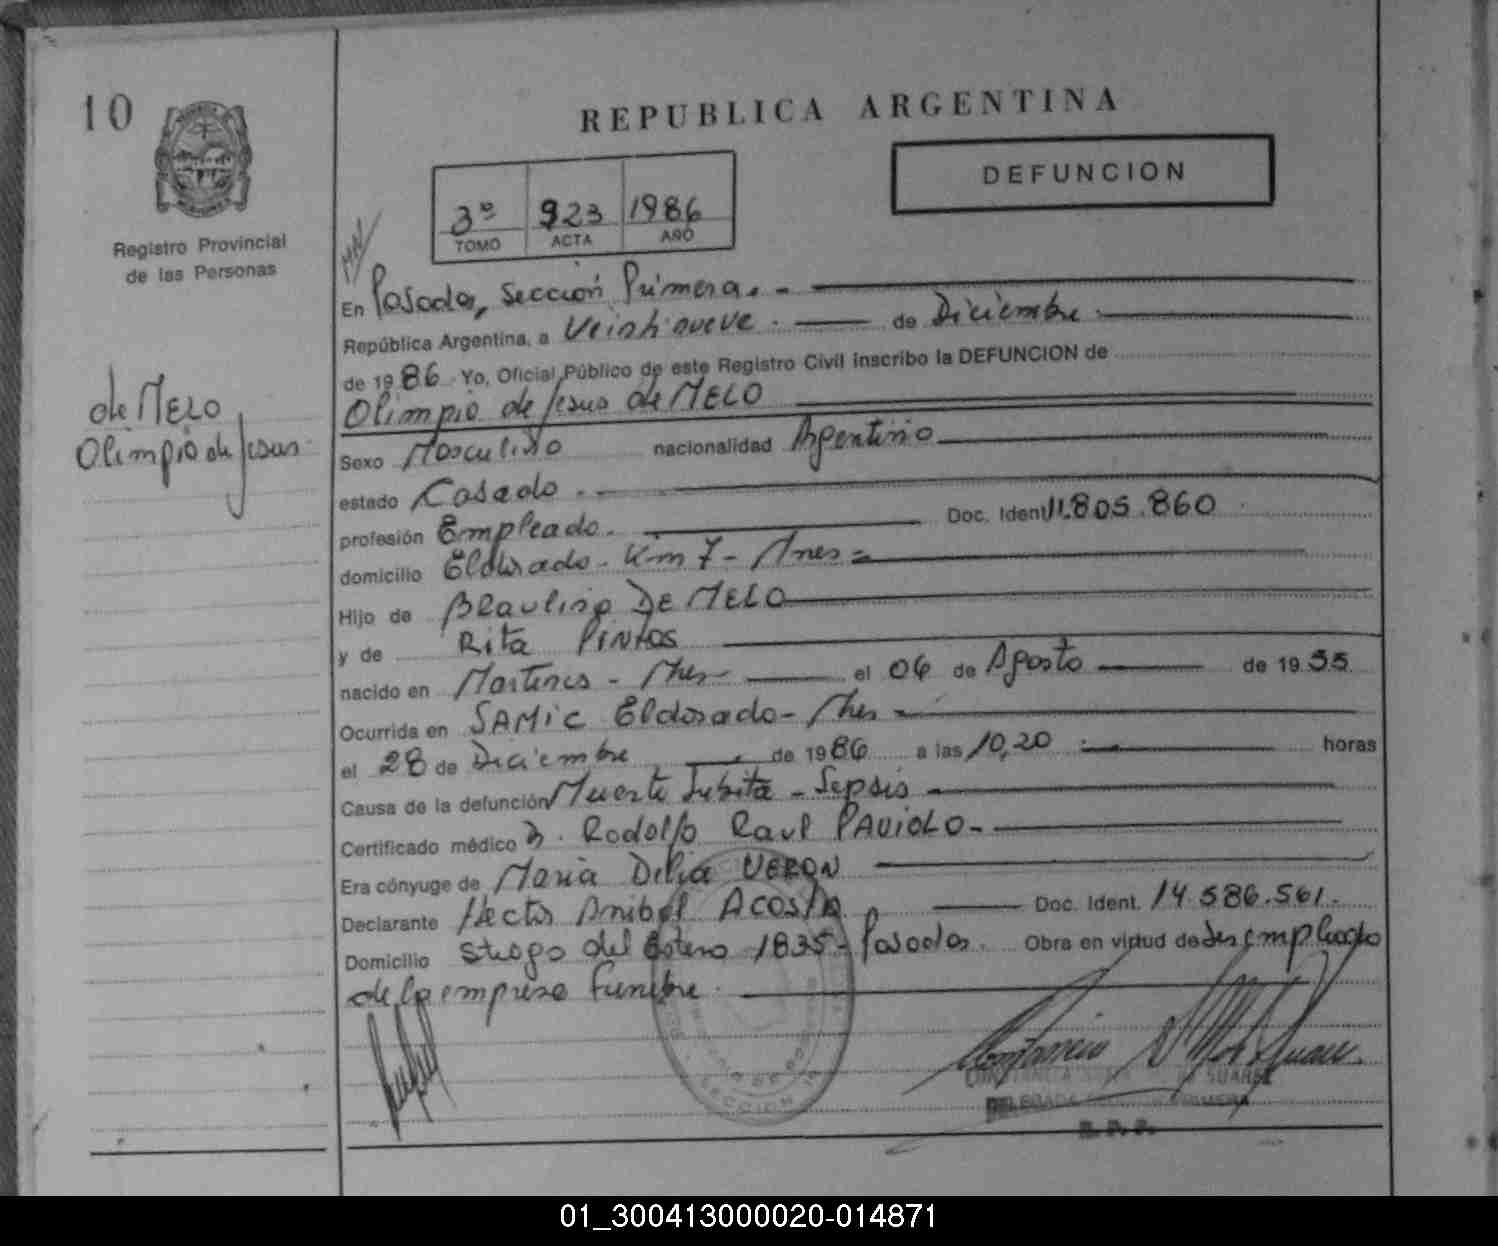 10
REPUBLICA ARGENTINA
DEFUNCION
3º 923 1986
TOMO ACTA AÑO
Registro Provincial
de las Personas
En Posadas, Sección Primera. -
República Argentina, a Veintinueve. de Diciembre
de 1986 Yo, Oficial Público de este Registro Civil inscribo la DEFUNCION de
Olimpio de Jesus de MELO
de MELO
Olimpio de Jesus
Sexo Masculino nacionalidad Argentino
estado Casado.
profesión Empleado. Doc. Ident 11.805.860
domicilio Eldorado - Km 7 - Mnes
Hijo de BRAULINO DE MELO
y de Rita PINTOS
nacido en Martires - Mnes el 06 de Agosto de 1955
Ocurrida en SAMIC Eldorado - Mnes
el 28 de Diciembre de 1986 a las 10,20 horas
Causa de la defunción Muerte Subita - Sepsis
Certificado médico D. Rodolfo Raul PAVIOLO -
Era cónyuge de Maria Delia VERON
Declarante Hector Anibal ACOSTA Doc. Ident. 14.586.561.
Domicilio Stgo del Estero 1835 - Posadas. Obra en virtud de ser empleado
de la empresa funebre.
SUAREZ
PRIMERA
R. P. P.
01_300413000020-014871